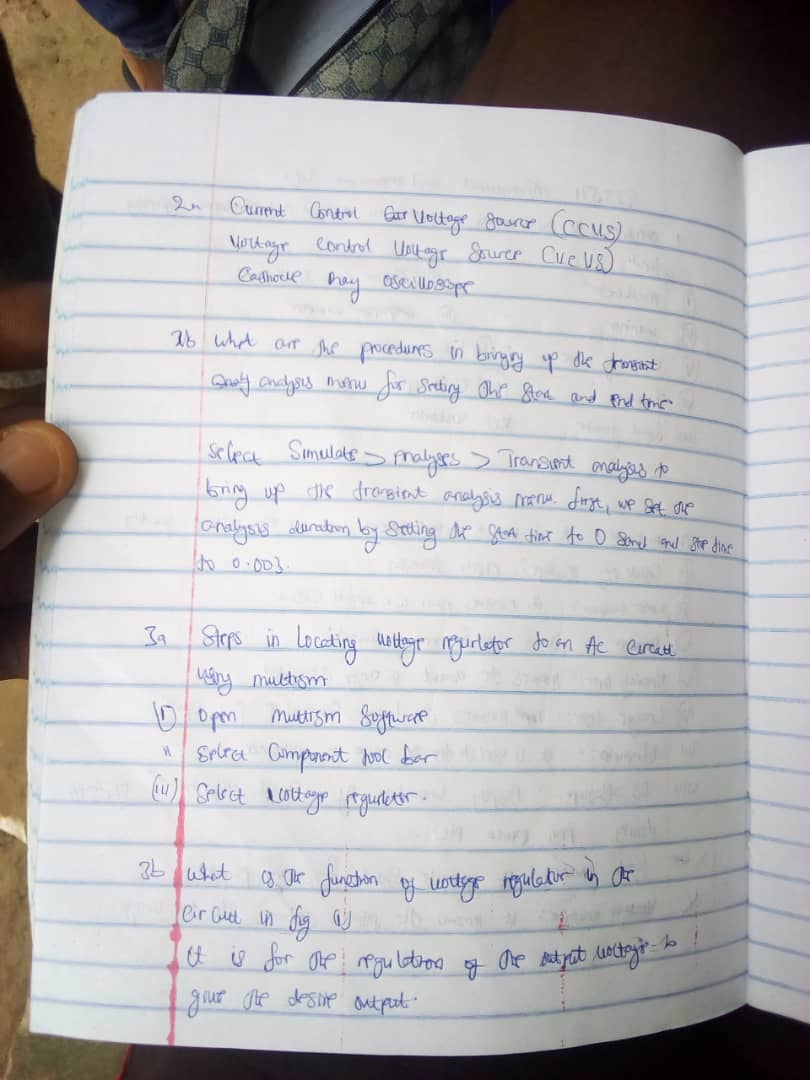 2a Current Control Voltage Source (CCVS)
Voltage Control Voltage Source (VCVS)
Cathode Ray oscilloscope
2b What are the procedures in bringing up the transient
analysis menu for setting the start and end time.
Select Simulate > Analyses > Transient analysis to
bring up the transient analysis menu. first, we set the
analysis duration by setting the start time to 0 and stop time
to 0.003.
3a Steps in Locating voltage regulator to an Ac Circuit
using multism
(i) Open multism Software
ii Select Component tool bar
(iii) Select voltage regulator.
3b What is the function of voltage regulator in the
Circuit in fig
It is for the regulation of the output voltage to
give the desire output.